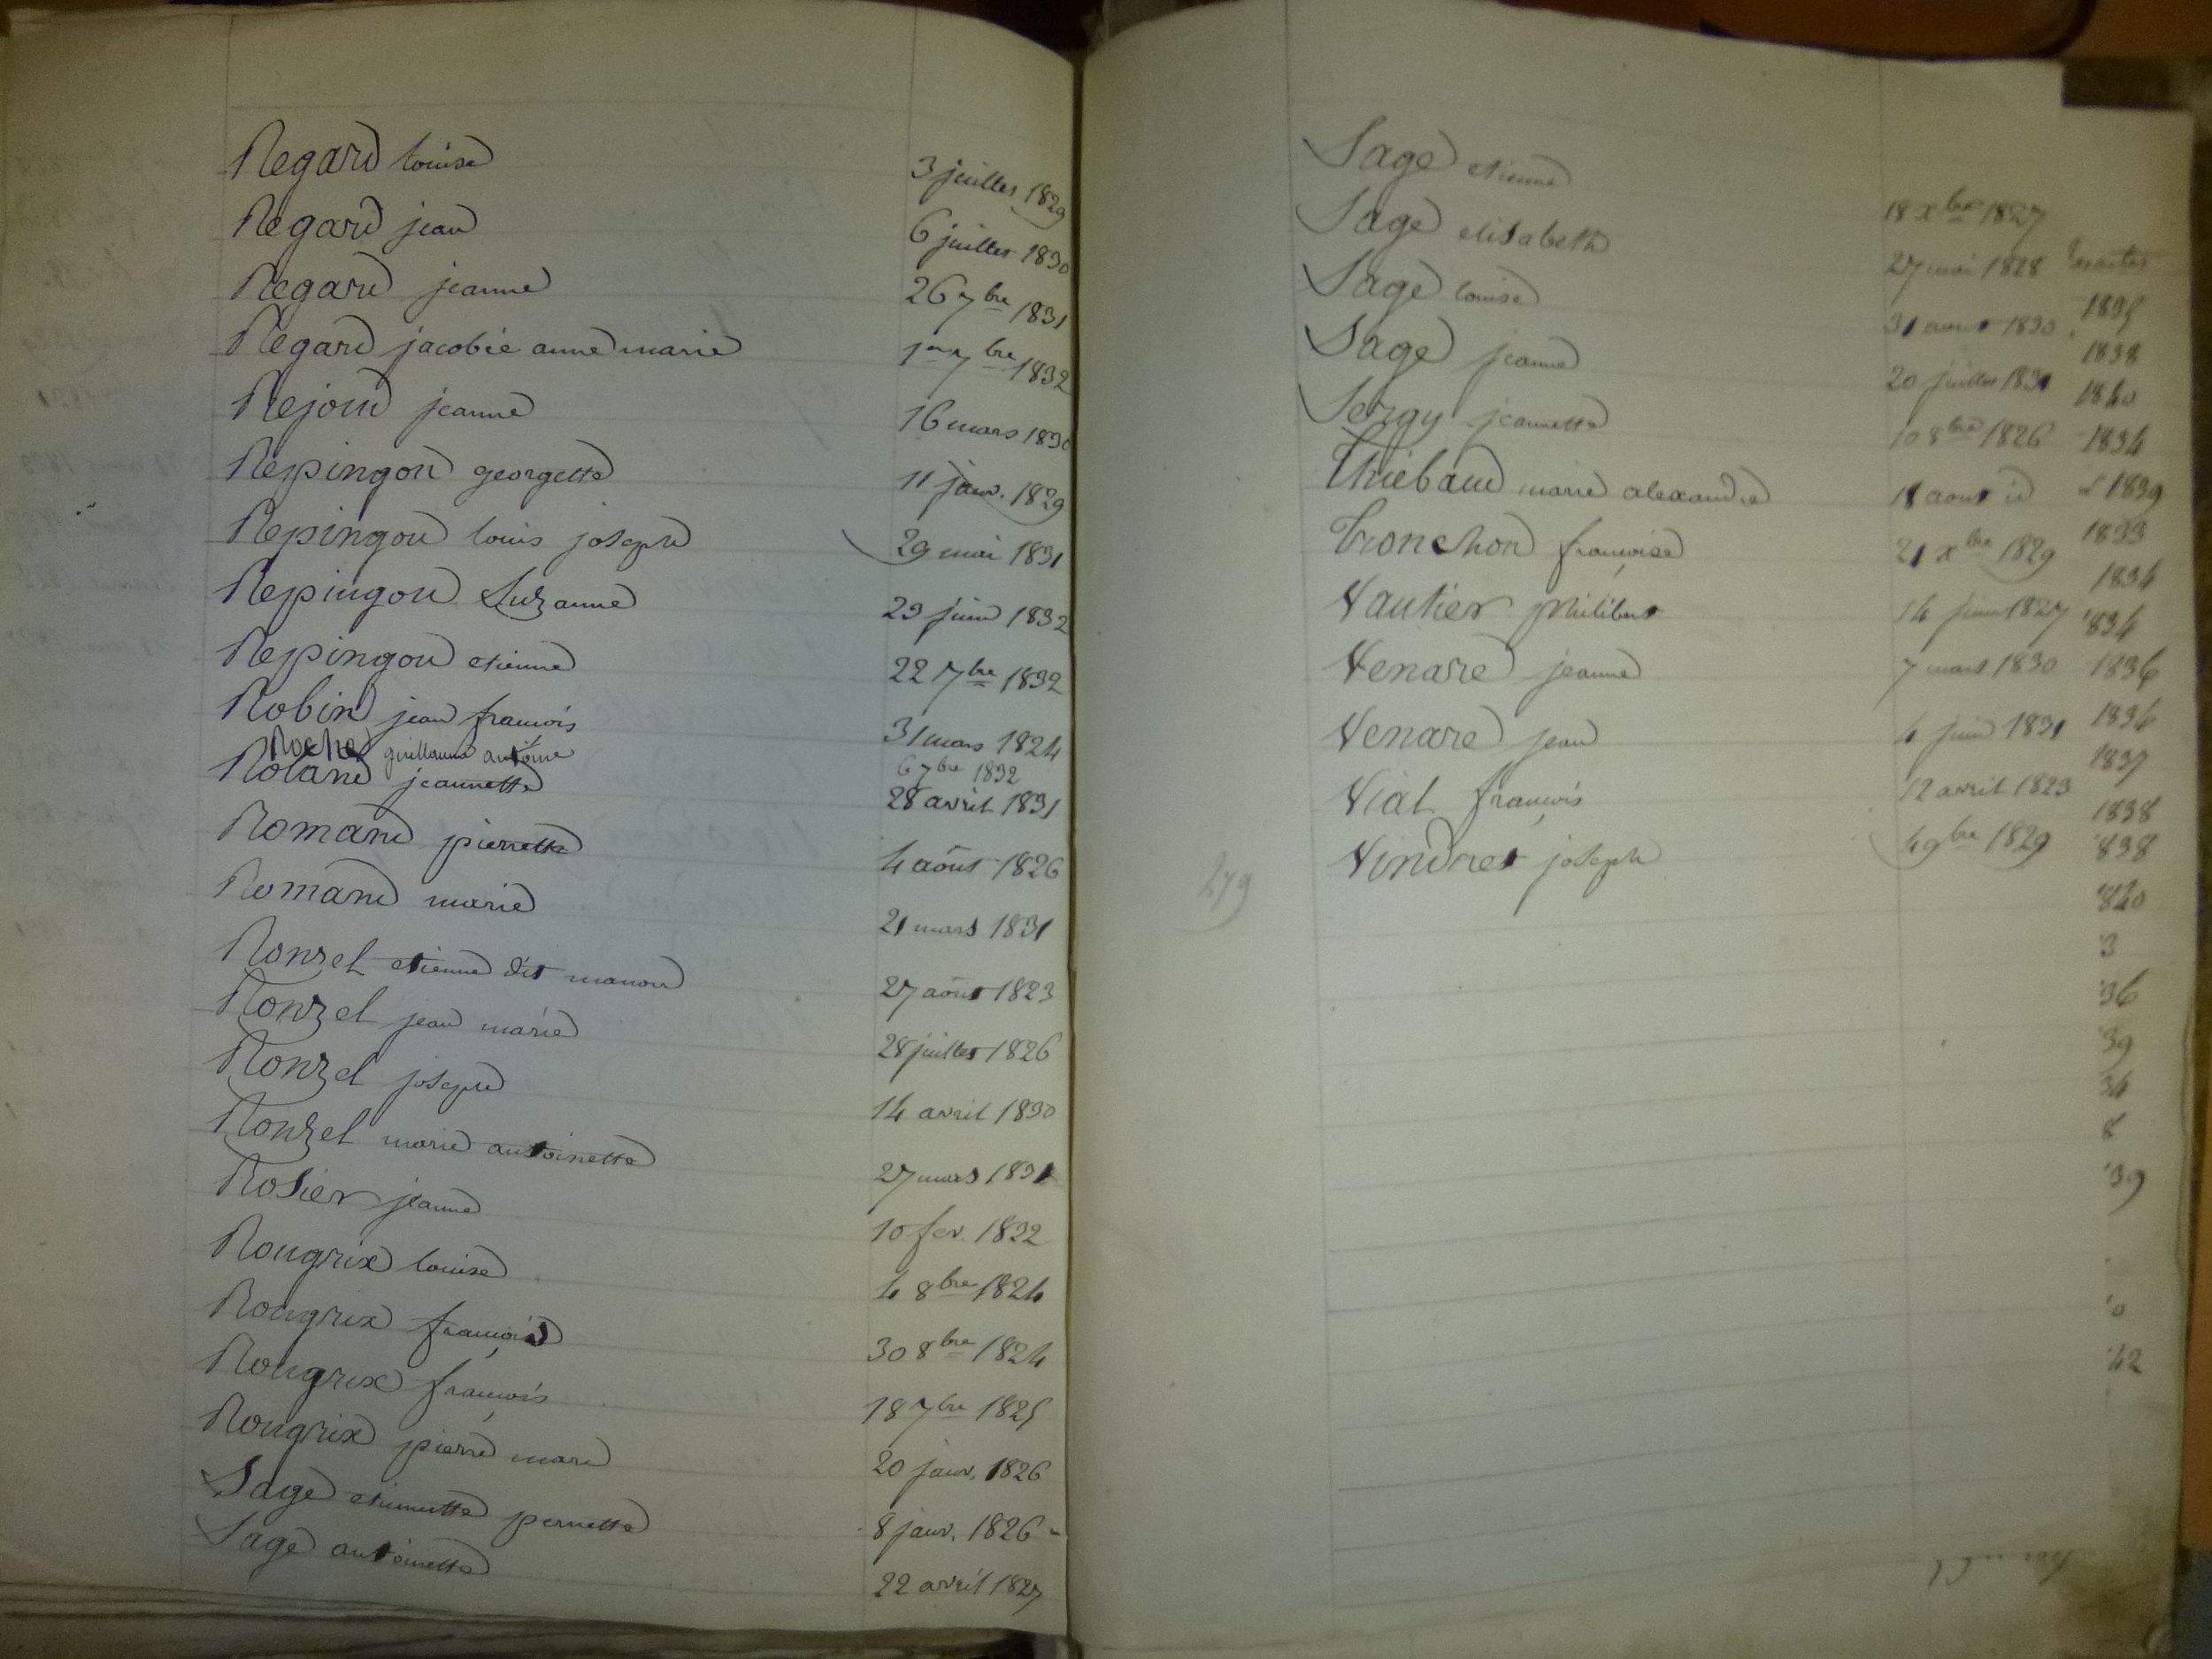 Regard louise 3 juillet 1829
Regard jean 6 juillet 1830
Regard jeanne 26 7bre 1831
Regard jacobée anne marie 1er 7bre 1832
Rejoud jeanne 16 mars 1830
Repingon georgette 11 janv. 1829
Repingon louis joseph 29 mai 1831
Repingon Suzanne 23 juin 1832
Repingon etienne 22 7bre 1832
Robin jean françois 31 mars 1824
Roche guillaume antoine 6 7bre 1832
Roland jeannette 28 avril 1831
Romand pierrette 4 août 1826
Romand marie 21 mars 1831
Ronzel etienne dit manon 27 août 1823
Ronzel jean marie 28 juillet 1826
Ronzel joseph 14 avril 1830
Ronzel marie antoinette 27 mars 1831
Rosier jeanne 10 fev. 1832
Rougrix louise 4 8bre 1824
Rougrix françois 30 8bre 1824
Rougrix françois 18 7bre 1825
Rougrix pierre marie 20 janv. 1826
Sage etiennette pernette 8 janv. 1826
Sage antoinette 22 avril 1827
Sage etienne 18 xbre 1827
Sage elisabeth 27 mai 1828
Sage louise 31 aout 1830
Sage jeanne 20 juillet 1831
Sergy jeannette 10 8bre 1826
Thiebaud marie alexandre 18 aout id
Tronchon françoise 21 xbre 1829
Vautier philibert 14 juin 1827
Venare jeanne 7 mars 1830
Venare jean 4 juin 1831
Vial françois 12 avril 1823
Vindret joseph 4 9bre 1829
279
1835
1838
1840
1834
1839
1833
1834
834
1836
1836
1837
1838
838
840
3
36
39
34
8
39
0
42